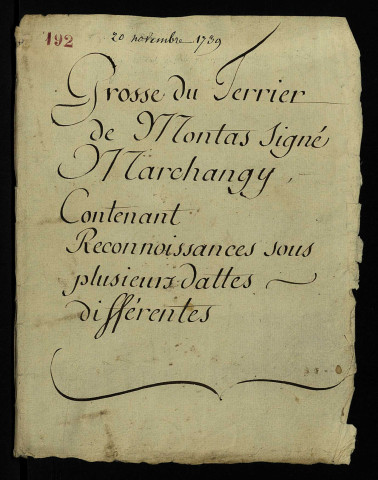 192
20 novembre 1739
Grosse du Terrier
de Montas Signé
Marchangy,
Contenant
Reconnoissances sous
plusieurs dattes
différentes